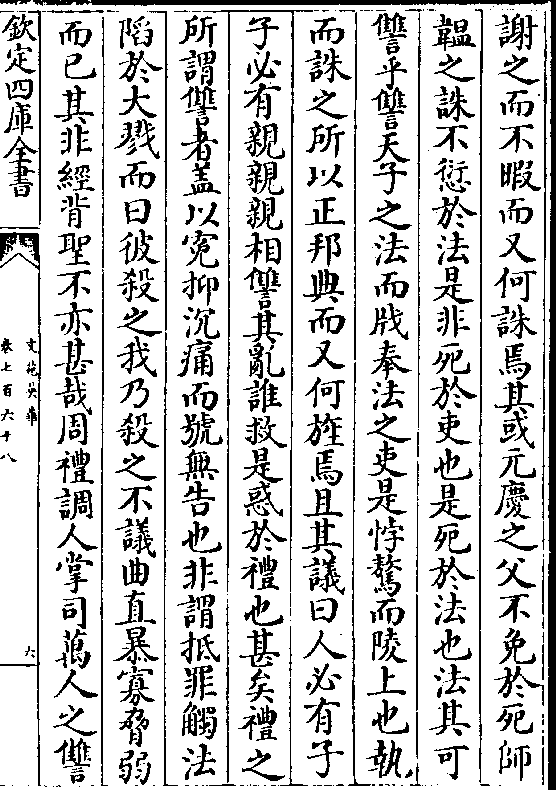 謝之而不暇而又何誅焉其或元慶之父不免於死師
韞之誅不愆於法是非死於吏也是死於法也法其可
讐乎讐天子之法而戕奉法之吏是悖驁而陵上也執
而誅之所以正邦典而又何旌焉且其議曰人必有子
子必有親親親相讐其亂誰救是惑於禮也甚矣禮之
所謂讐者盖以寃抑沉痛而號無告也非謂抵罪觸法
䧟於大戮而曰彼殺之我乃殺之不議曲直暴寡脅弱
而已其非經背聖不亦甚哉周禮調人掌司萬人之讐
欽定四庫全書
文苑英華
卷七百六十八
六